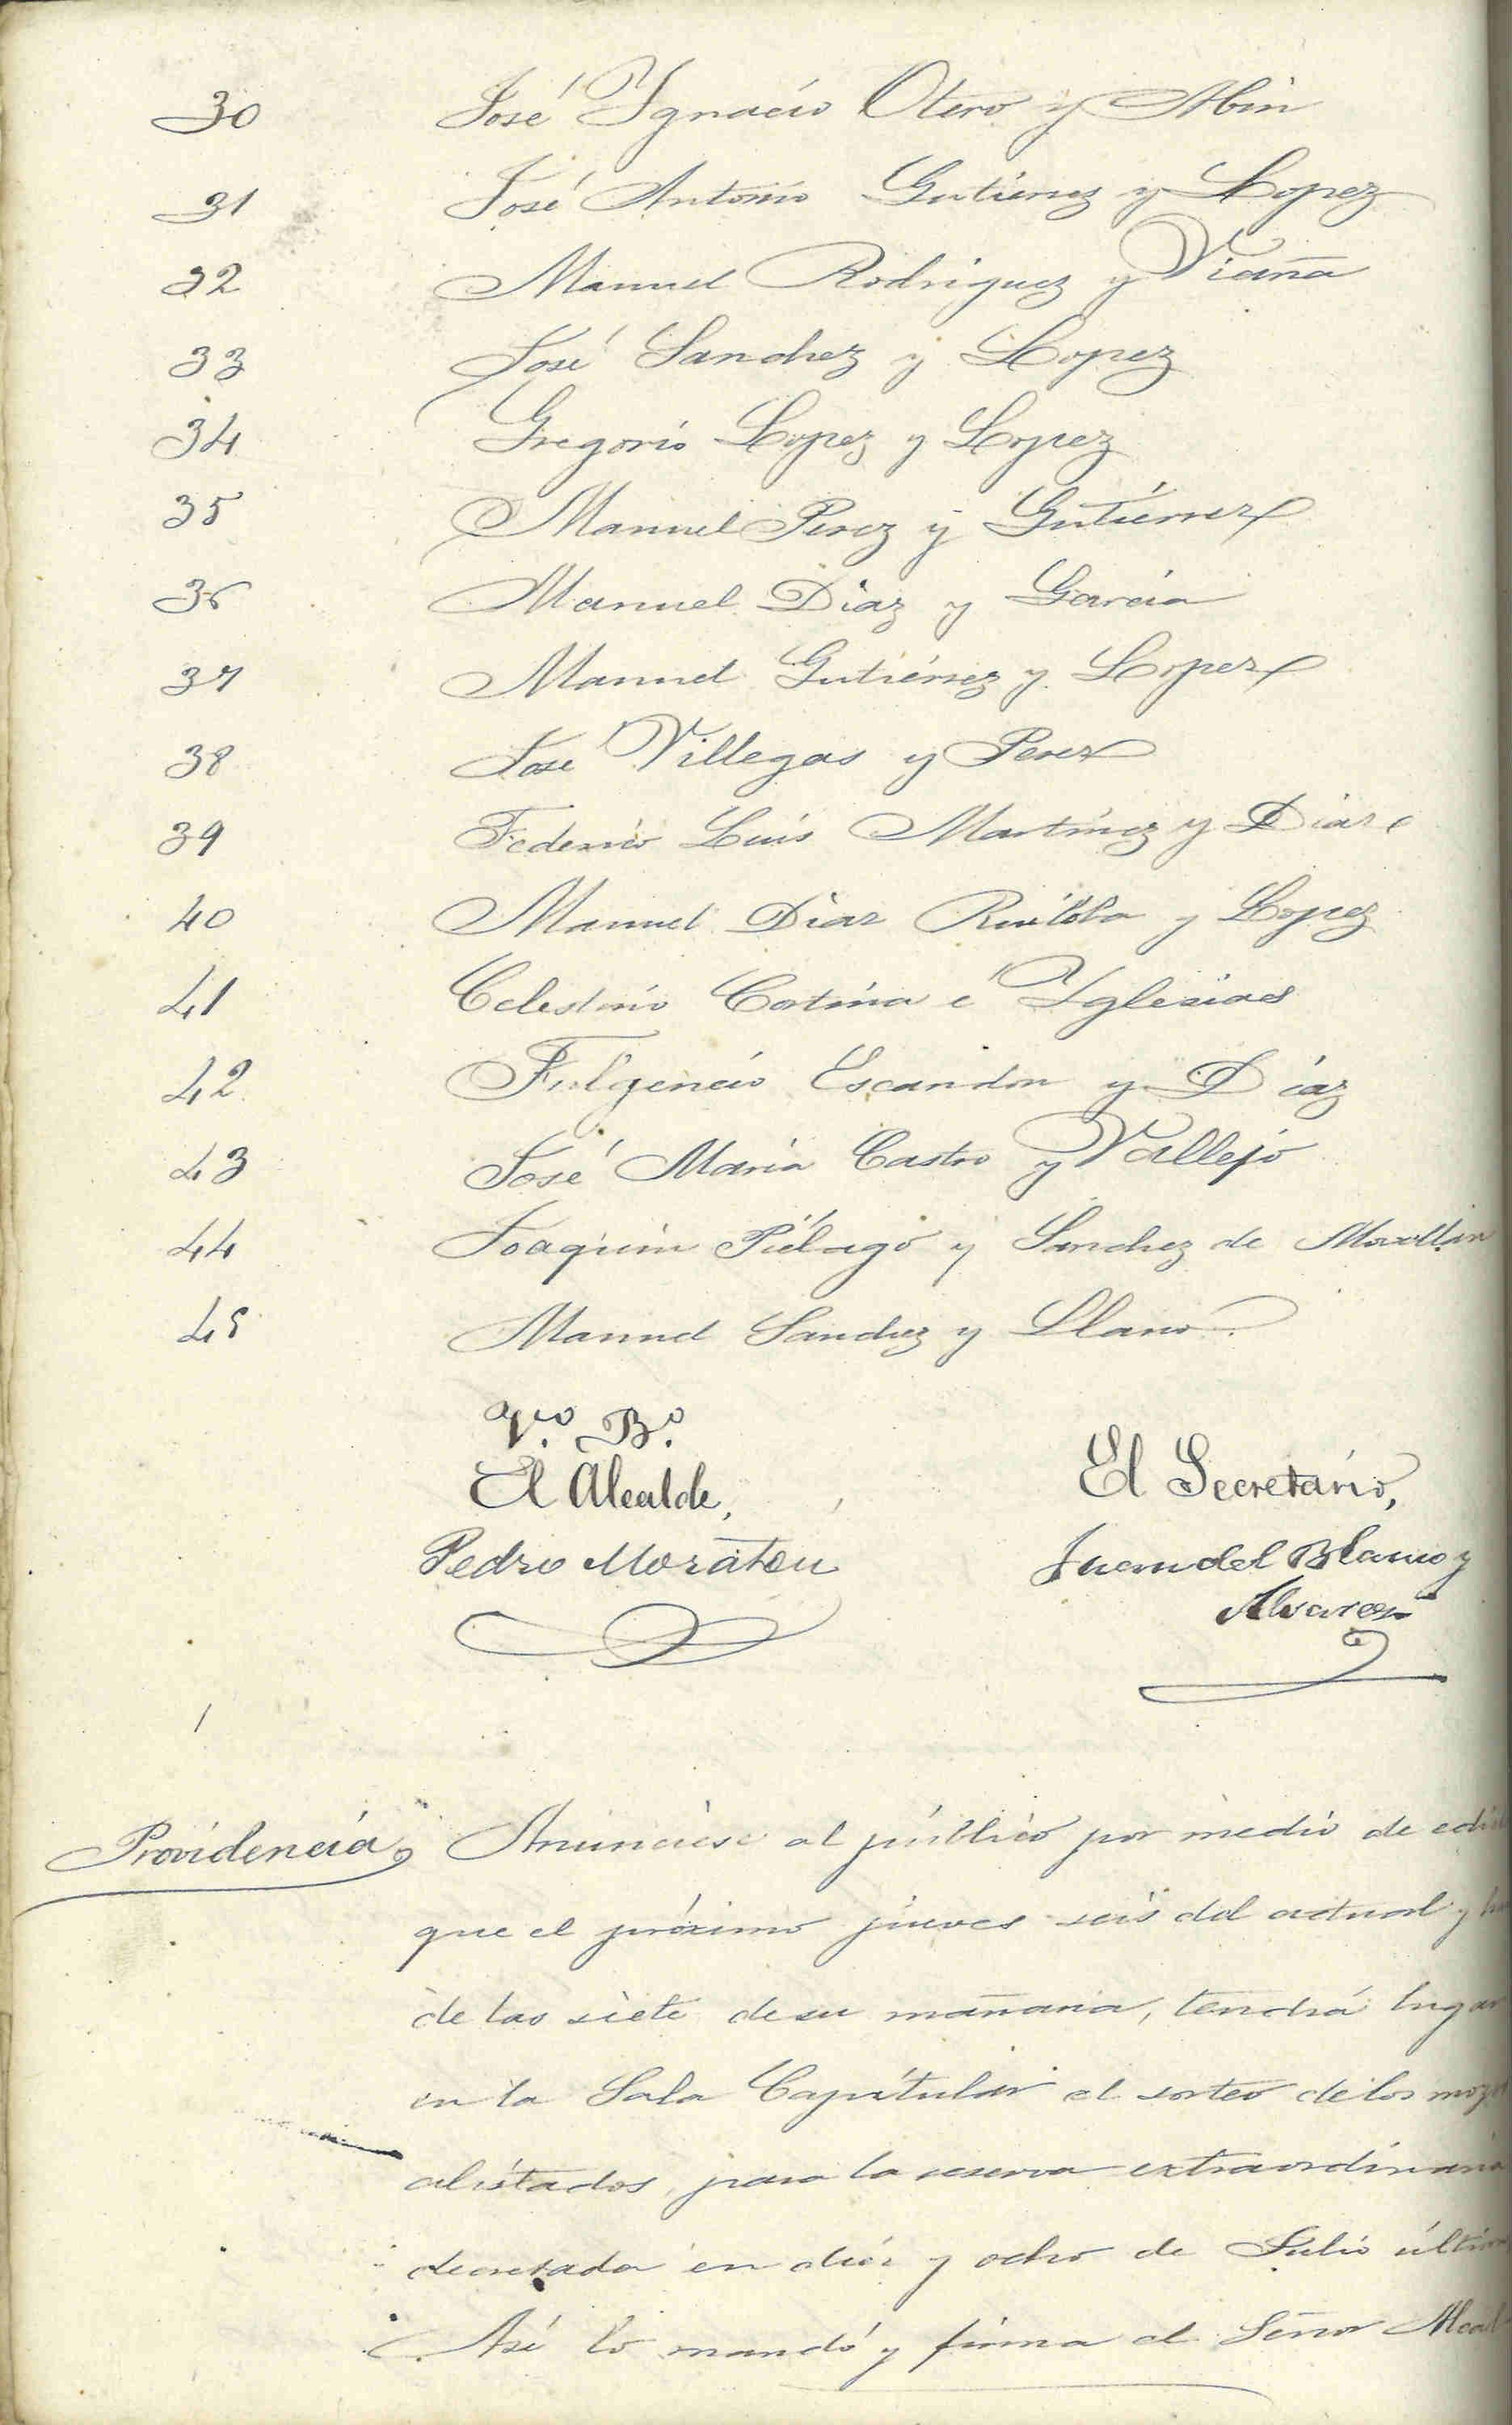 30 José Ygnacio Otero y Abin
31 José Antonio Gutierrez y Lopez
32 Manuel Rodriguez y Viaña
33 José Sanchez y Lopez
34 Gregorio Lopez y Lopez
35 Manuel Perez y Gutiérrez
36 Manuel Diaz y Garcia
37 Manuel Gutiérrez y Lopez
38 José Villegas y Perez
39 Federico Luis Martinez y Diaz
40 Manuel Diaz Ruiloba y Lopez
41 Celestino Cortina é Yglesias
42 Fulgencio Escandon y Diaz
43 José Maria Castro y Vallejo
44 Joaquin Piélago y Sanchez de Movellan
45 Manuel Sanchez y Llano.
Vto. Bo.
El Alcalde, El Secretario,
Pedro Moratou Juan del Blanco y
Alvarez
Providencia, Anunciese al público por medio de
que el próximo jueves seis del actual y
de las siete de su mañana, tendrá lugar
en la Sala Capitular el sorteo de los
alistados, para la reserva extraordinaria
decretada en diez y ocho de Julio
Asi lo mandó y firma el Señor